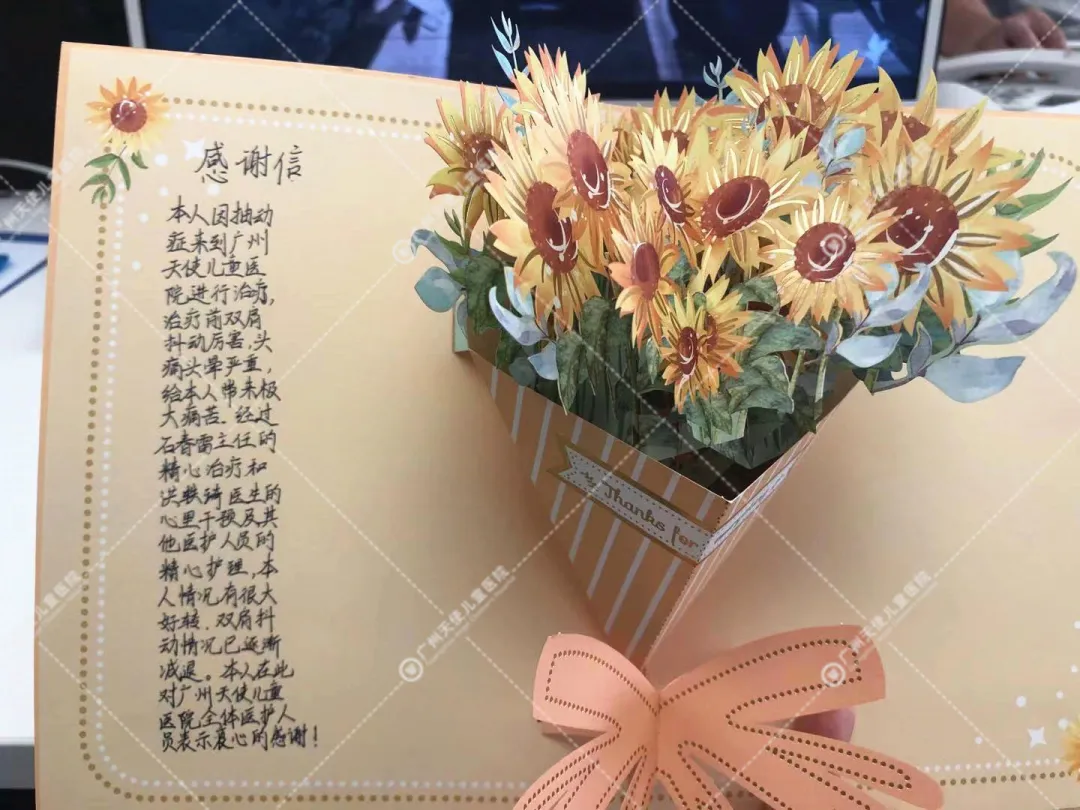 感谢信
本人因抽动
症来到广州
天使儿童医
院进行治疗,
治疗前双肩
抖动厉害,头
痛头晕严重,
给本人带来极
大痛苦.经过
石春雷主任的
精心治疗和
洪 琦医生的
心里干预及其
他医护人员的
精心护理,本
人情况有很大
好转.双肩抖
动情况已逐渐
减退。本人在此
对广州天使儿童
医院全体医护人
员表示衷心的感谢!
Thanks for
广州天使儿童医院
广州天使儿童医院
广州天使儿童医院